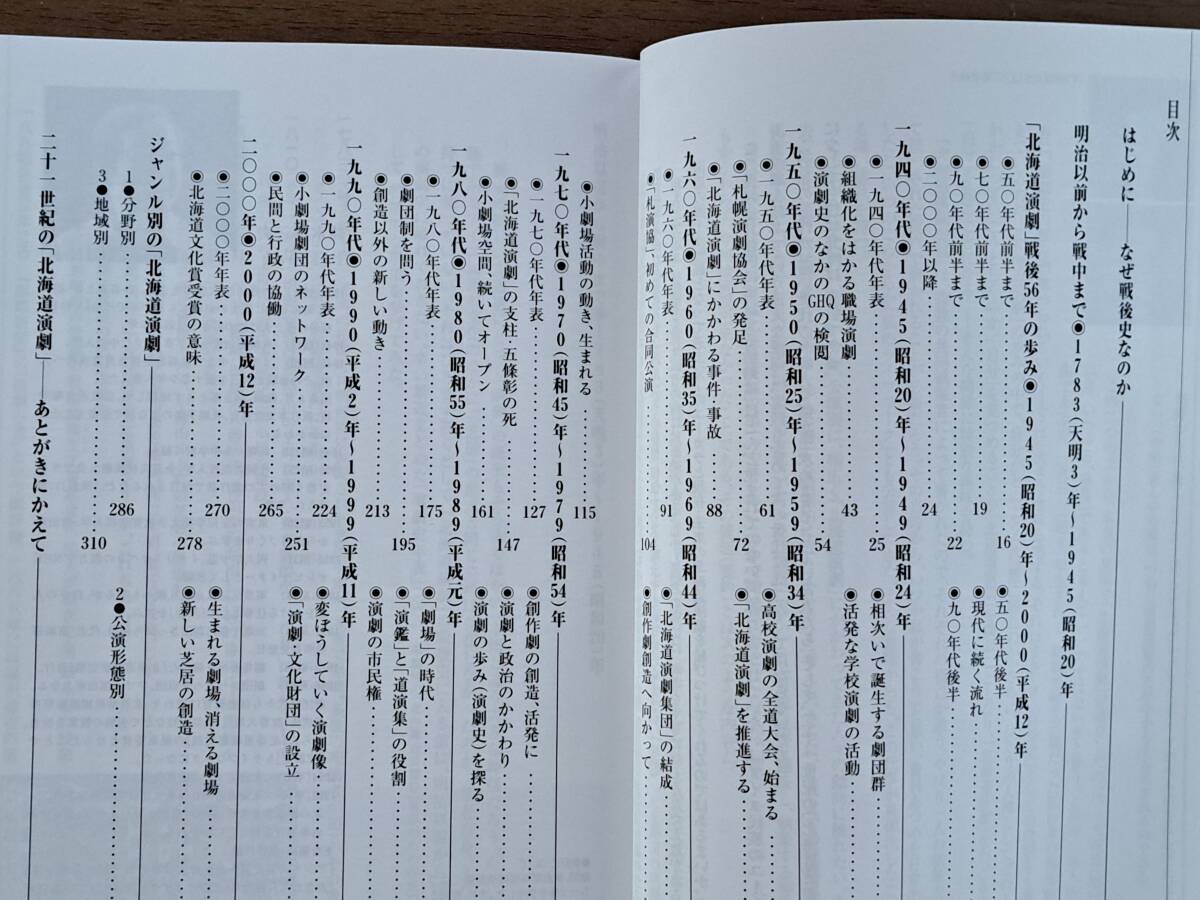 目次
はじめに――なぜ戦後史なのか
明治以前から戦中まで◉1783(天明3)年～1945(昭和20)年
「北海道演劇」戦後56年の歩み◉1945(昭和20)年～2000(平成12)年
◉五〇年代前半まで 16
◉五〇年代後半
◉七〇年代前半まで 19
◉現代に続く流れ
◉九〇年代前半まで 22
◉九〇年代後半
◉二〇〇〇年以降 24
一九四〇年代◉1945(昭和20)年～1949(昭和24)年
◉一九四〇年代年表 25
◉相次いで誕生する劇団群
◉組織化をはかる職場演劇 43
◉活発な学校演劇の活動
◉演劇史のなかのGHQの検閲 54
一九五〇年代◉1950(昭和25)年～1959(昭和34)年
◉一九五〇年代年表 61
◉高校演劇の全道大会、始まる
◉「札幌演劇協会」の発足 72
◉「北海道演劇」を推進する
◉「北海道演劇」にかかわる事件 事故 88
一九六〇年代◉1960(昭和35)年～1969(昭和44)年
◉一九六〇年代年表 91
◉「北海道演劇集団」の結成
◉「札演協」、初めての合同公演 104
◉創作劇創造へ向かって
◉小劇場活動の動き、生まれる 115
一九七〇年代◉1970(昭和45)年～1979(昭和54)年
◉一九七〇年代年表 127
◉創作劇の創造、活発に
◉「北海道演劇」の支柱 五條彰の死 147
◉演劇と政治のかかわり
◉小劇場空間、続いてオープン 161
◉演劇の歩み(演劇史)を探る
一九八〇年代◉1980(昭和55)年～1989(平成元)年
◉一九八〇年代年表 175
◉「劇場」の時代
◉劇団制を問う 195
◉「演鑑」と「道演集」の役割
◉創造以外の新しい動き 213
◉演劇の市民権
一九九〇年代◉1990(平成2)年～1999(平成11)年
◉一九九〇年代年表 224
◉変ぼうしていく演劇像
◉小劇場劇団のネットワーク 251
◉「演劇」文化財団」の設立
◉民間と行政の協働 265
二〇〇〇年◉2000(平成12)年
◉二〇〇〇年年表 270
◉生まれる劇場、消える劇場
◉北海道文化賞受賞の意味 278
◉新しい芝居の創造
ジャンル別の「北海道演劇」
1◉分野別 286
2◉公演形態別
3◉地域別 310
二十一世紀の「北海道演劇」――あとがきにかえて